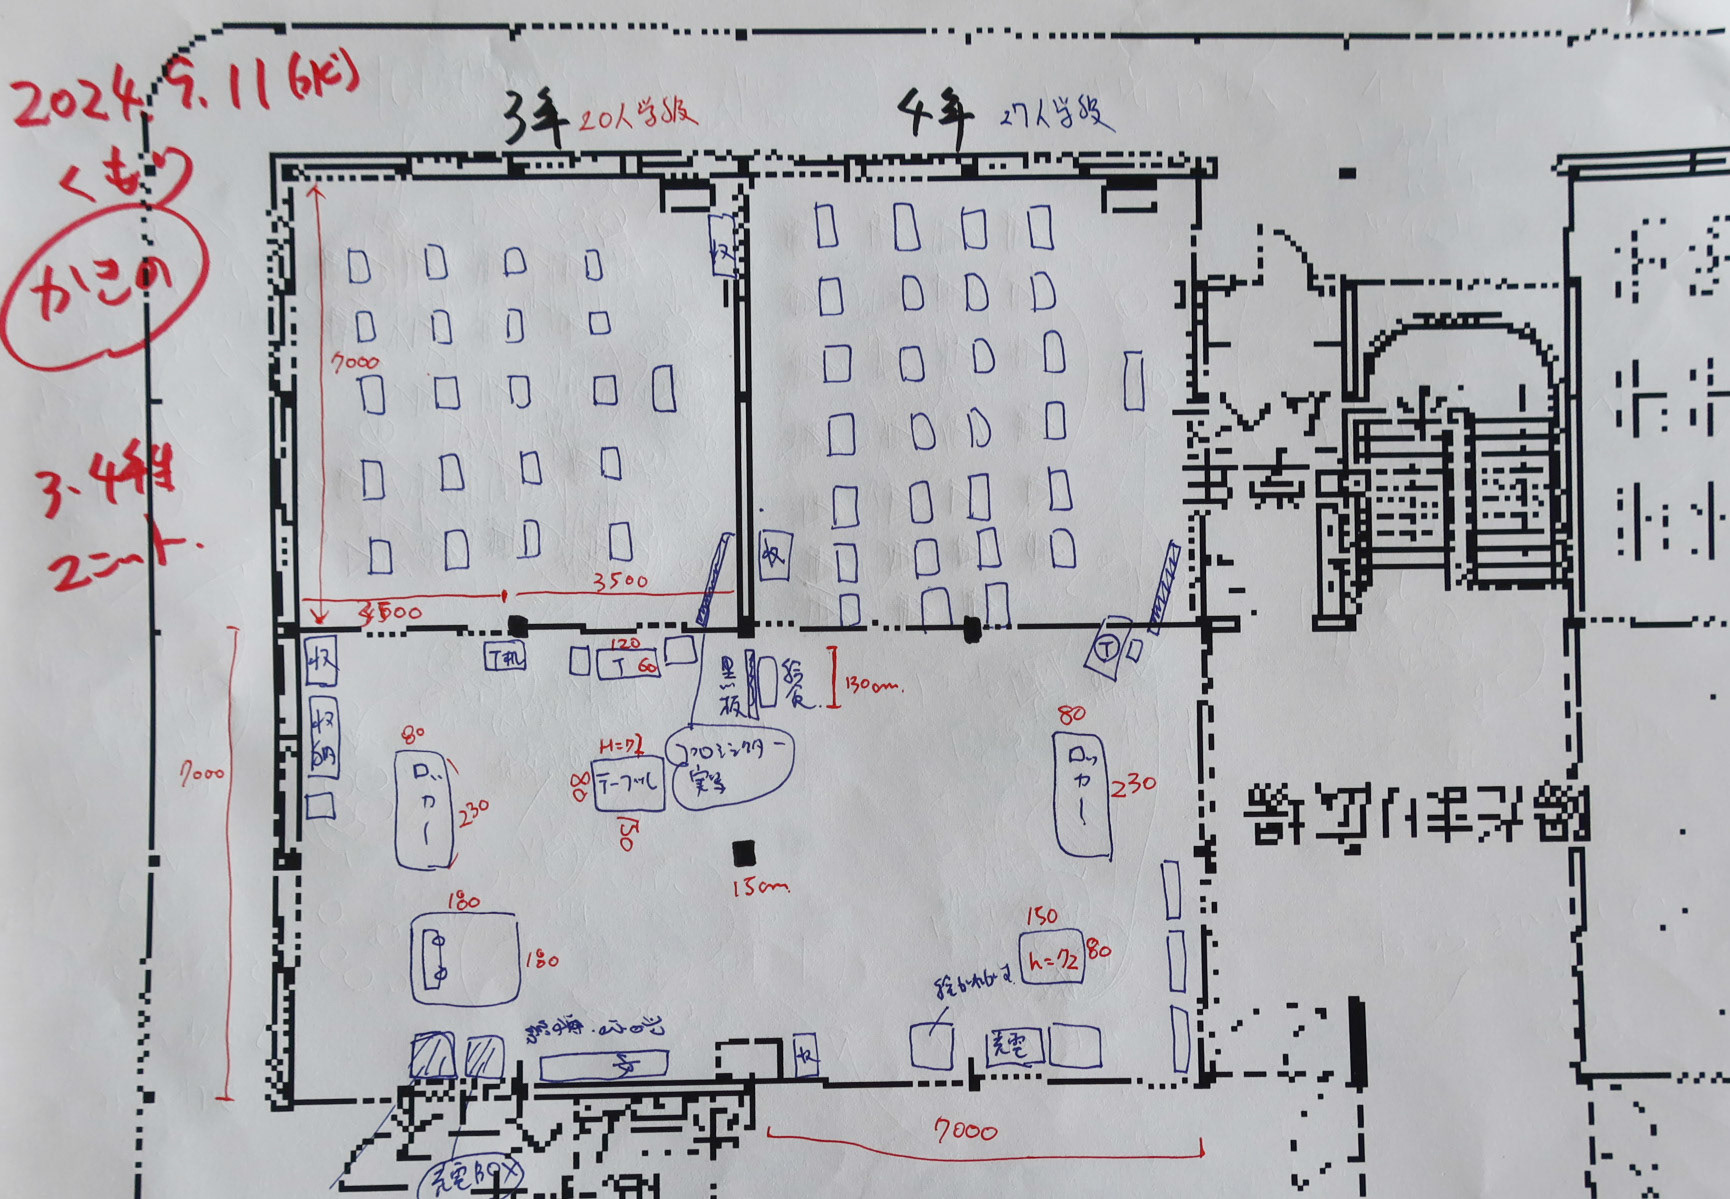 2024. 9. 11 (水)
くもり
かきの
3・4年生
ユニット.
3年 20人学級
4年 27人学級
収
7000
3500
3500
収
収
収納
T机
120
T 60
黒板
給食
130cm.
T
80
ロッカー
230
H=72
80
テーブル
150
プロジェクター
実写
80
ロッカー
230
15cm.
180
180
150
h=72
80
7000
収
充電
7000
充電BOX